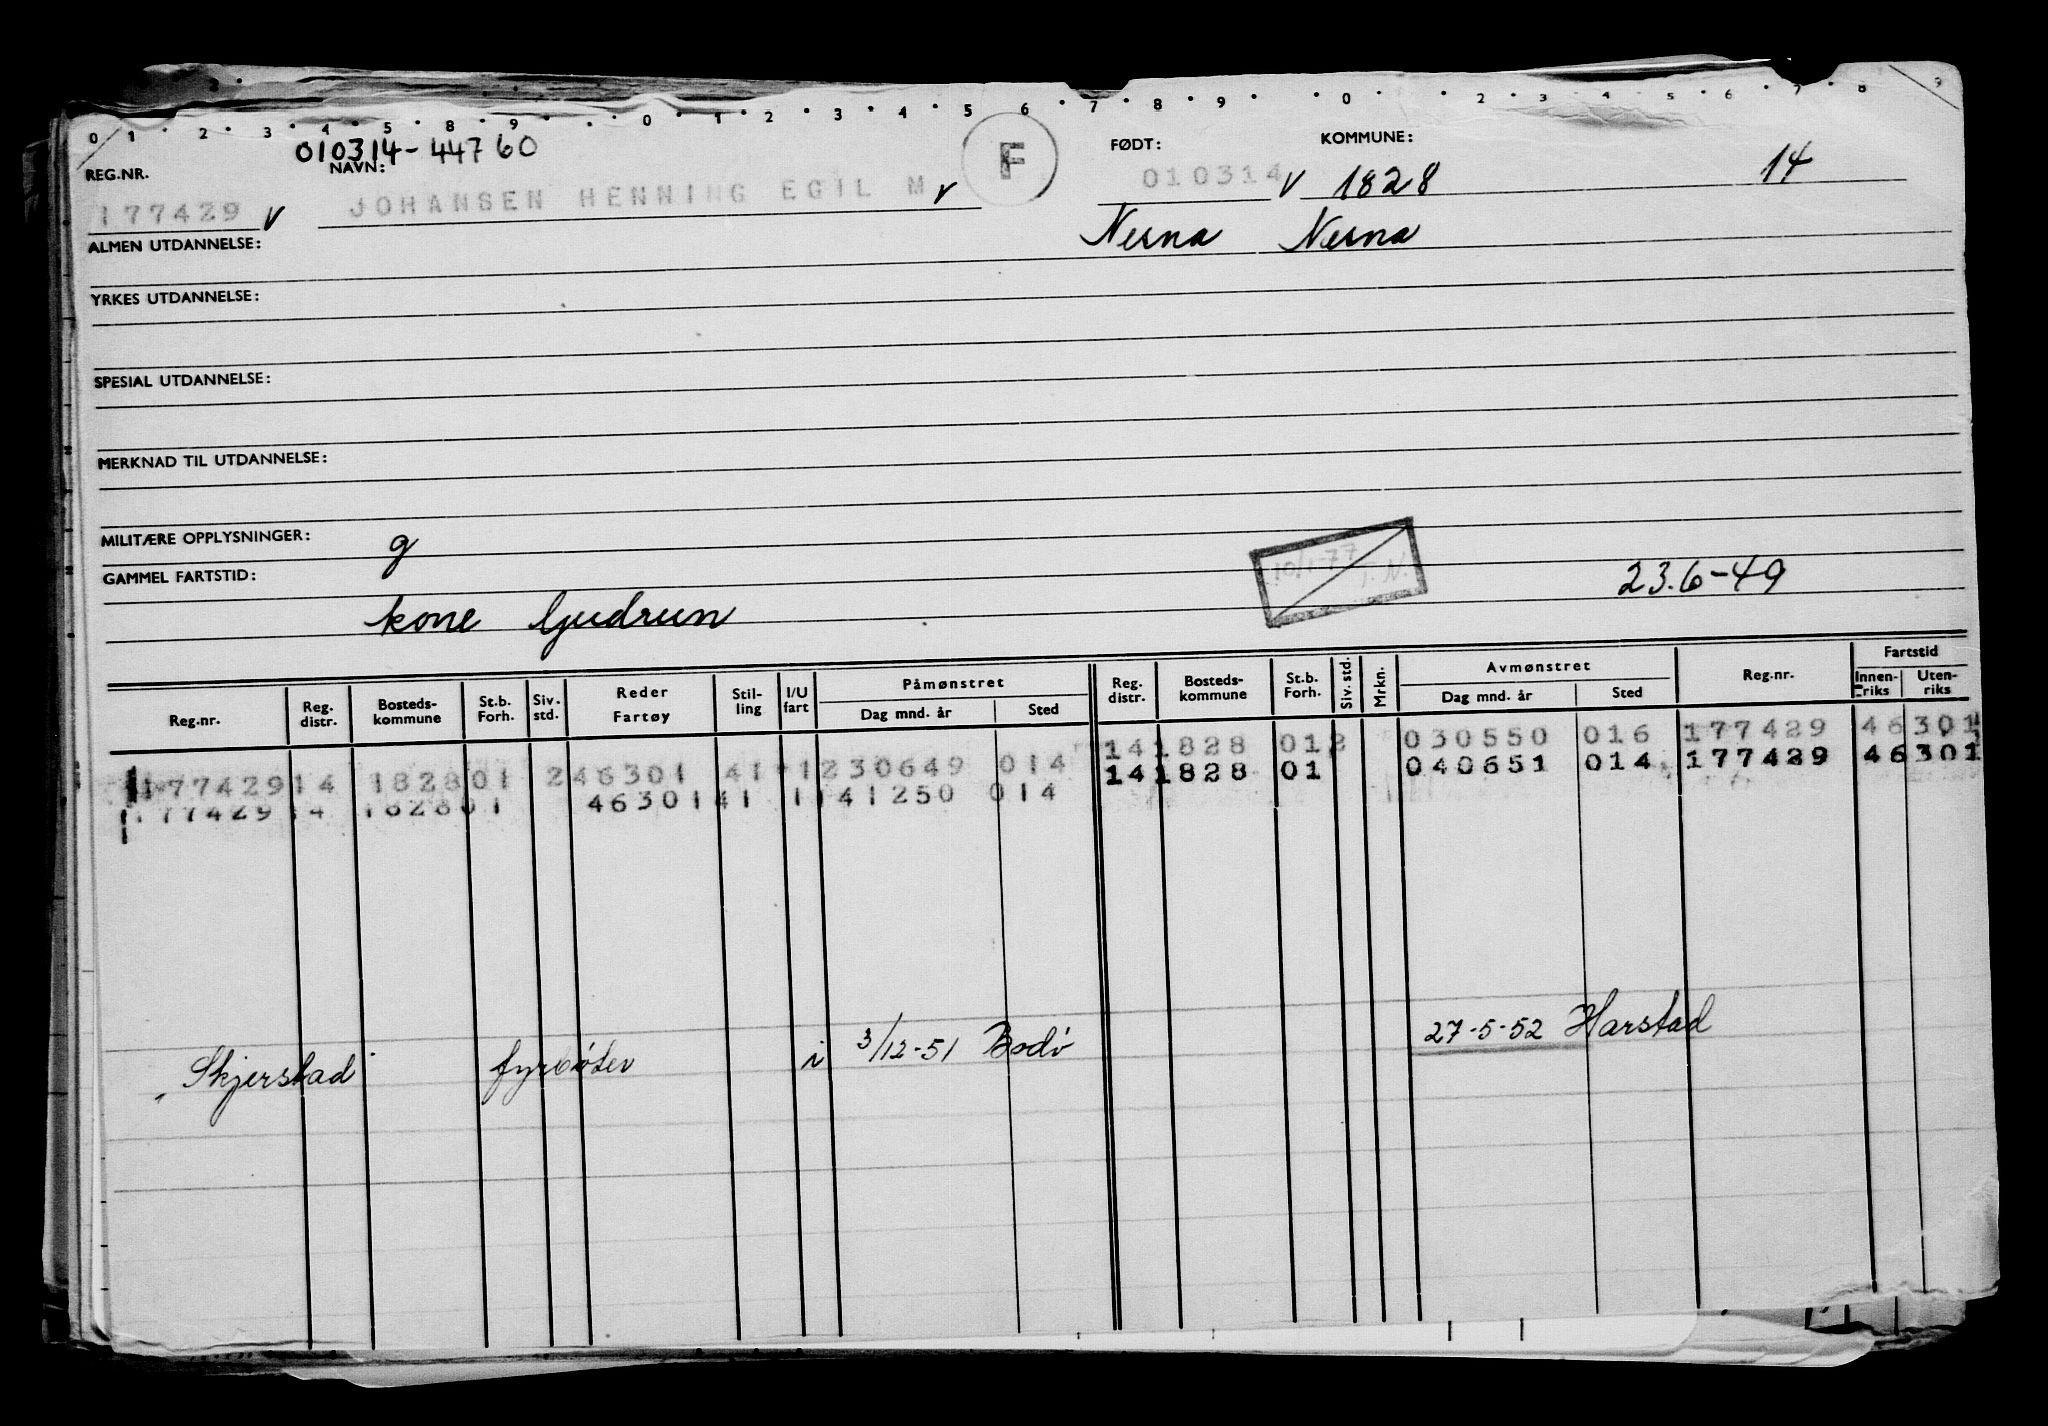 0 1 2 3 4 5 8 9 0 1 2 3 4 5 6 7 8 9 0 2 3 4 5 6 7 8 9
010314-44760
REG.NR. NAVN: F FØDT: KOMMUNE:
177429 V JOHANSEN HENNING EGIL M V 010314 V 1828 14
ALMEN UTDANNELSE: Nesna Nesna
YRKES UTDANNELSE:
SPESIAL UTDANNELSE:
MERKNAD TIL UTDANNELSE:
MILITÆRE OPPLYSNINGER: g
GAMMEL FARTSTID: 10/1-77 23.6-49
kone Gudrun
Reg.nr. Reg. distr. Bosteds-kommune St.b. Forh. Siv. std. Reder Fartøy Stil-ling I/U fart Påmønstret Dag mnd. år Sted Reg. distr. Bosteds-kommune St.b. Forh. Siv. std. Mrkn. Avmønstret Dag mnd. år Sted Reg.nr. Fartstid Innen-riks Uten-riks
177429 14 1828 01 2 46301 41 1 230649 014 14 1828 01 2 030550 016 177429 46301
177429 14 1828 01 46301 41 1 141250 014 14 1828 01 040651 014 177429 46301
Skjerstad fyrbøter i 3/12-51 Bodø 27-5-52 Harstad